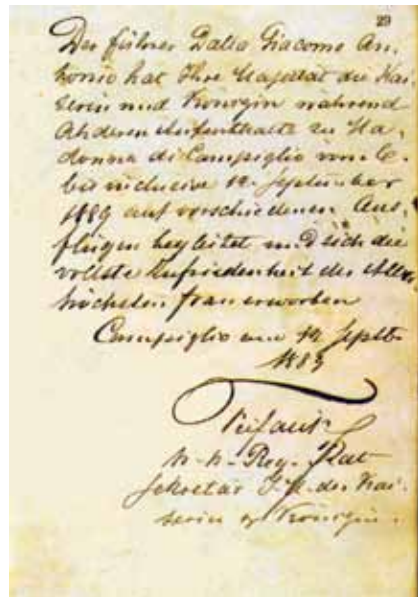 29
Der Führer Dalla Giacomo An-
tonio hat Ihre Majestät die Kai-
serin und Königin während
Aufenthalte zu Ma-
donna di Campiglio vom 6.
bis inclusive 12. September
1889 auf verschiedenen Aus-
flügen begleitet und sich die
vollste Zufriedenheit der Aller-
höchsten Frau erworben
Campiglio am 12 Septb.
1889
k. k. Reg. Rat
Sekretär I. M. der Kai-
serin & Königin.